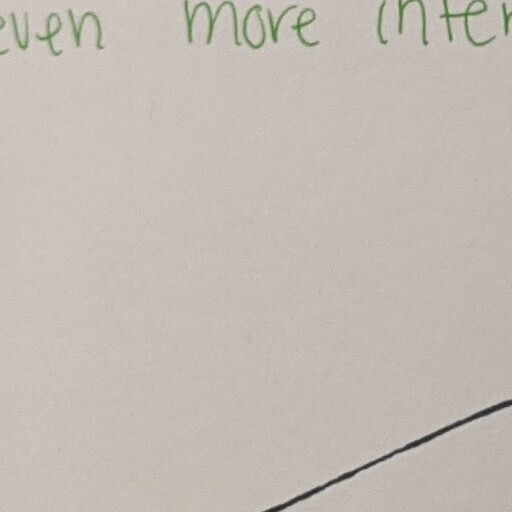 even more inter